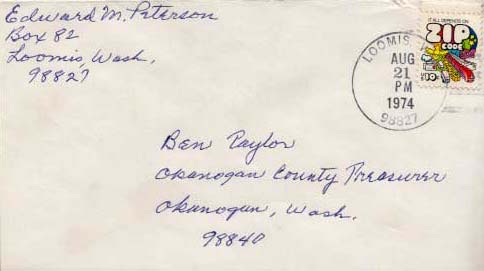 Edward M. Peterson
Box 82
Loomis, Wash,
98827
LOOMIS,
AUG
21
PM
1974
98827
IT ALL DEPENDS ON
ZIP
CODE
10c
Ben Paylor
Okanogan County Treasurer
Okanogan, Wash.
98840